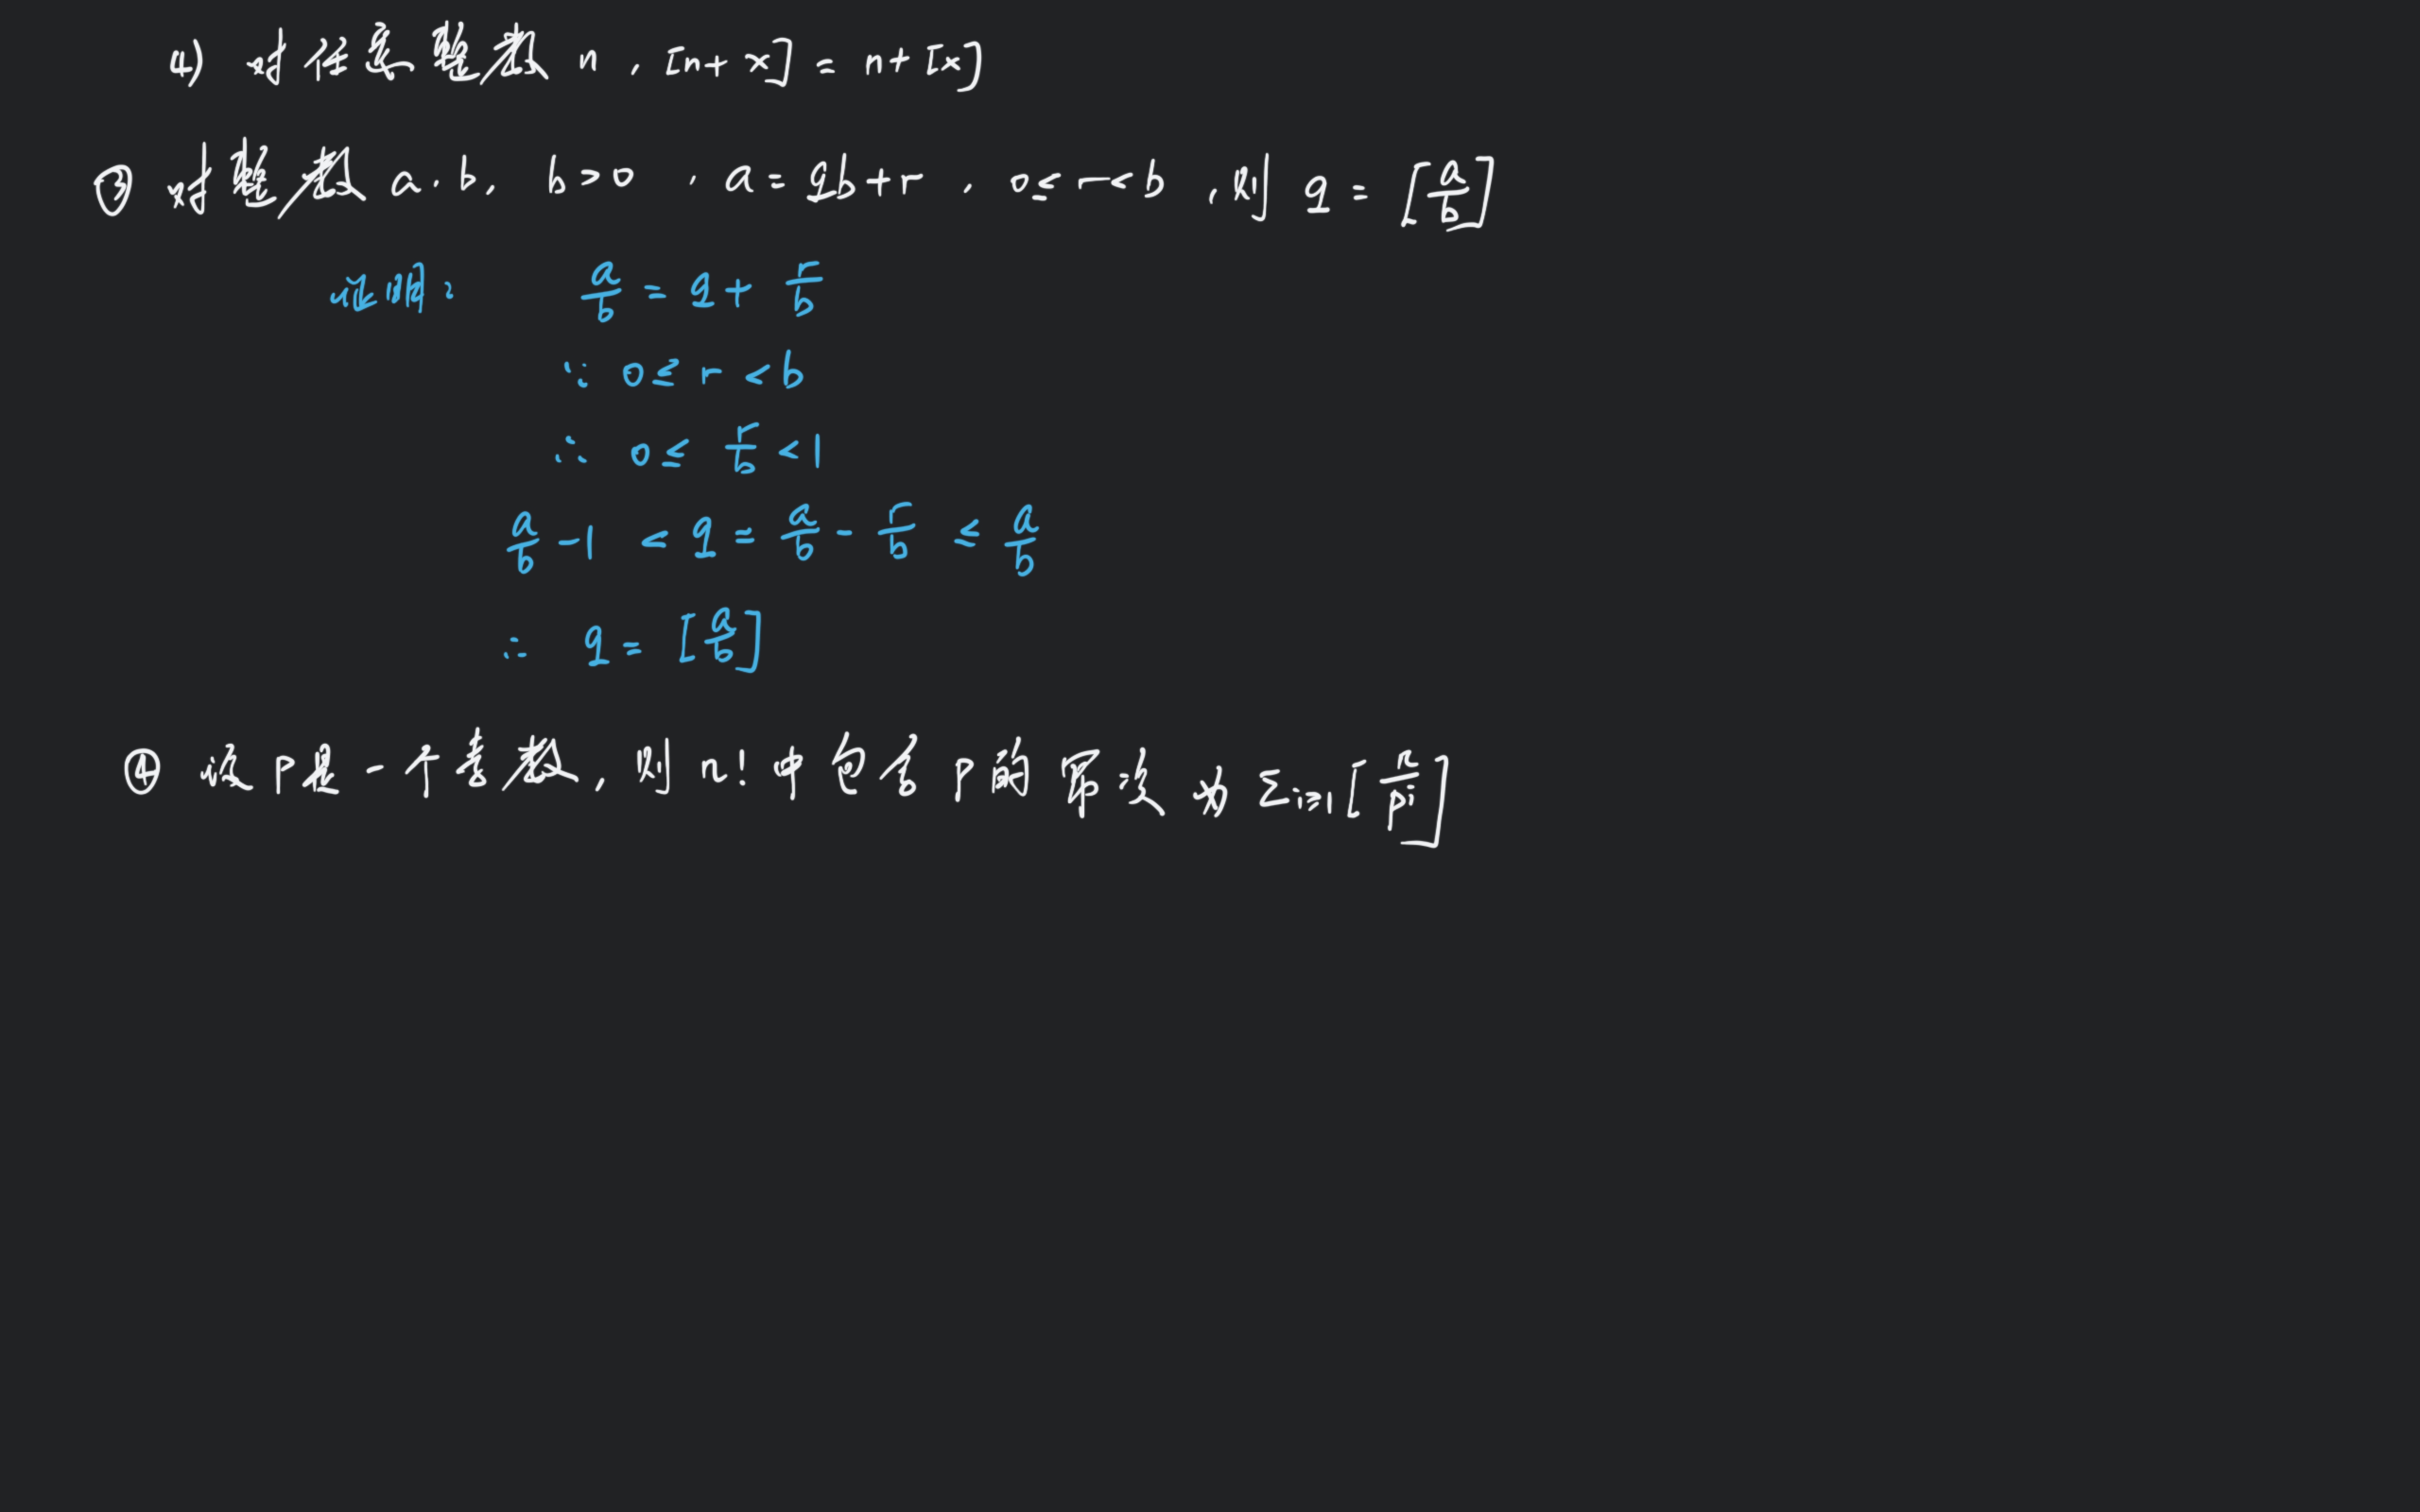 4) 对任意整数 n , [n+x] = n+[x]
③ 对整数 a·b, b>0 , a=qb+r , 0≤r<b ,则 q=[a/b]
证明: a/b = q + r/b
∵ 0≤r<b
∴ 0≤ r/b <1
a/b -1 < q = a/b - r/b ≤ a/b
∴ q = [a/b]
④ 设P是一个素数,则 n! 中包含 P 的幂次为 Σi≥1 [n/pⁱ]